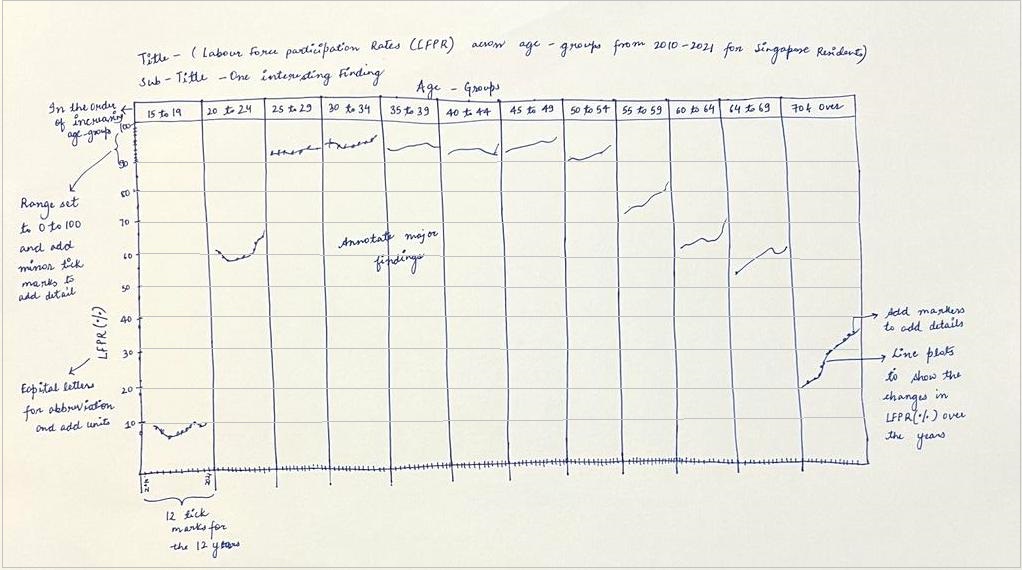 Title - ( Labour Force participation Rates (LFPR) across age - groups from 2010-2021 for Singapore Residents)
Sub - Title - One interesting Finding
Age - Groups
In the order
of increasing
age-groups
15 to 19
20 to 24
25 to 29
30 to 34
35 to 39
40 to 44
45 to 49
50 to 54
55 to 59
60 to 64
64 to 69
70 & over
100
90
80
70
60
50
40
30
20
10
Range set
to 0 to 100
and add
minor tick
marks to
add detail
Annotate major
findings
LFPR(%)
Capital letters
for abbreviation
and add units
Add markers
to add details
Line plots
to show the
changes in
LFPR(%) over
the years
2021
12 tick
marks for
the 12 years